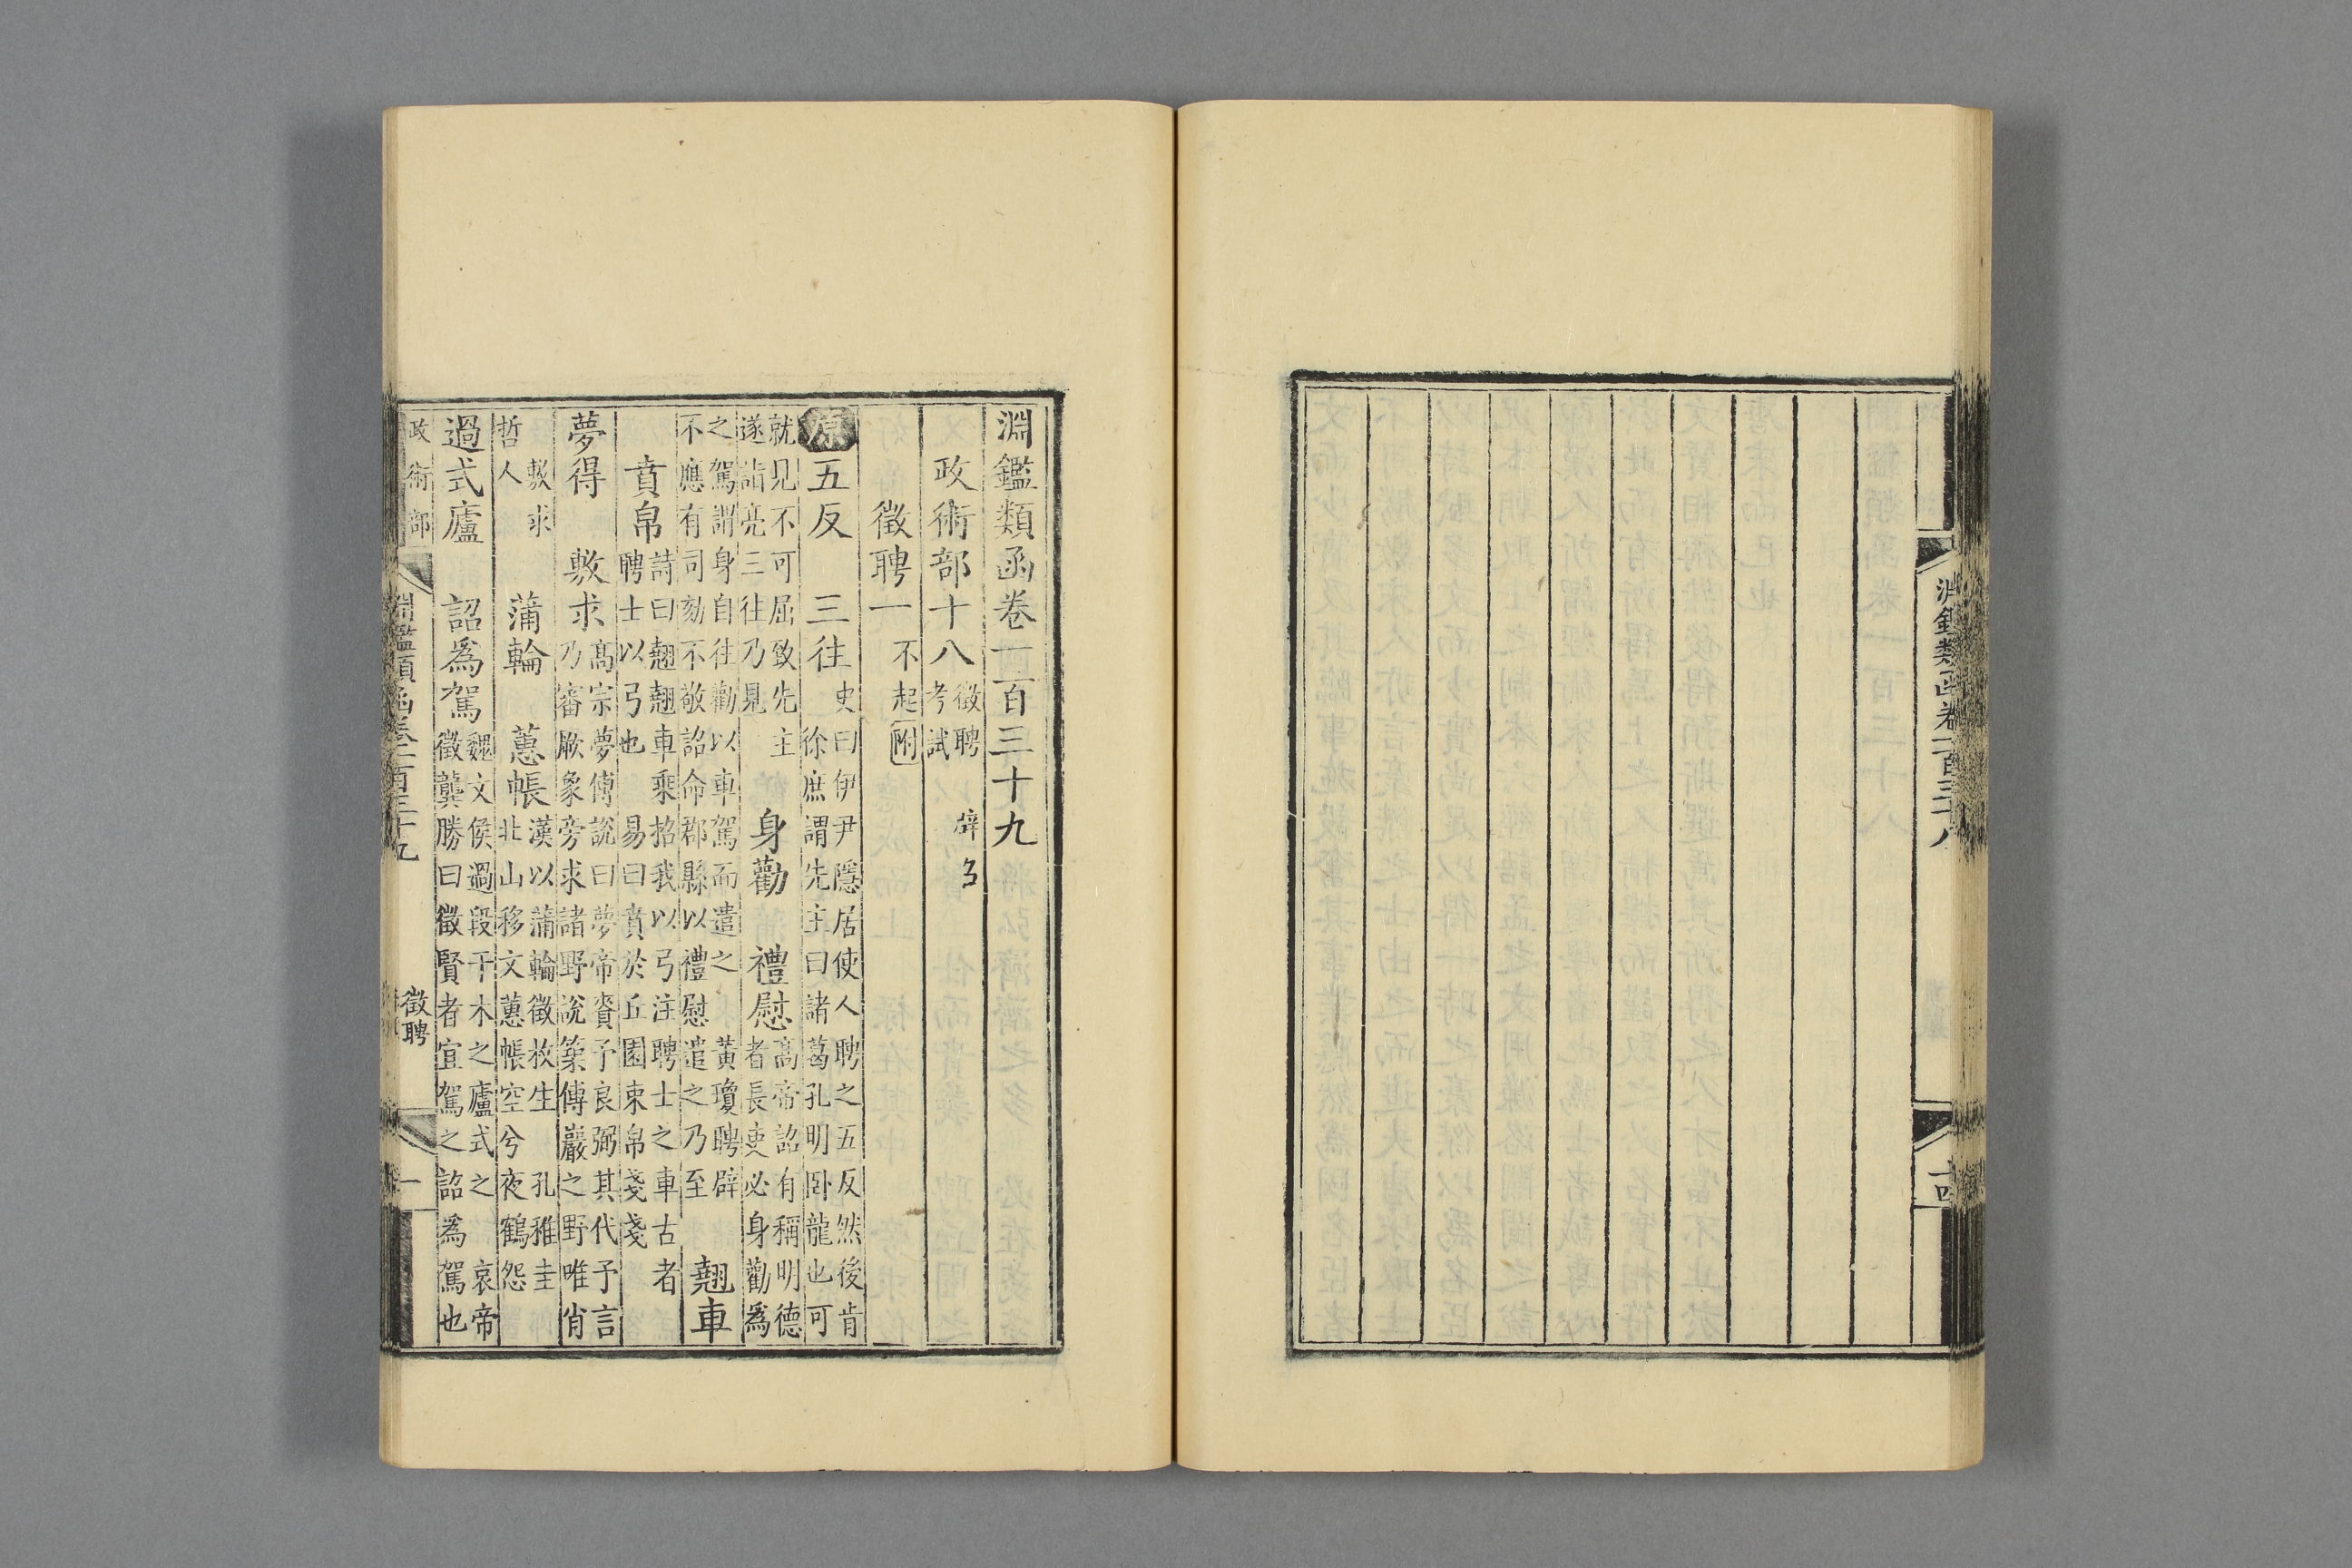 淵鑑類函卷一百三十八
十四
淵鑑類函卷一百三十九
政術部十八 徵聘 辟召 考試
徵聘一 不起附
原 五反 三往 史曰伊尹隱居使人聘之五反然後肯 徐庶謂先主曰諸葛孔明卧龍也可
就見不可屈致先主 遂詣亮三往乃見 身勸 禮慰 高帝詔有稱明德 者長吏必身勸爲
之駕謂身自往勸以車駕而遣之 黃瓊聘辟 不應有司劾不敬詔命郡縣以禮慰遣之乃至 翹車
賁帛 詩曰翹翹車乘招我以弓注聘士之車古者 聘士以弓也 易曰賁於丘園束帛戔戔
夢得 敷求 高宗夢傅說曰夢帝賚予良弼其代予言 乃審厥象旁求諸野說築傅巖之野唯肖
敷求 哲人 蒲輪 蕙帳 漢以蒲輪徵枚生 孔稚圭 北山移文蕙帳空兮夜鶴怨
過式廬 詔爲駕 魏文侯過段干木之廬式之 哀帝 徵龔勝曰徵賢者宜駕之詔爲駕也
政術部 淵鑑類函卷一百三十九 徵聘 一